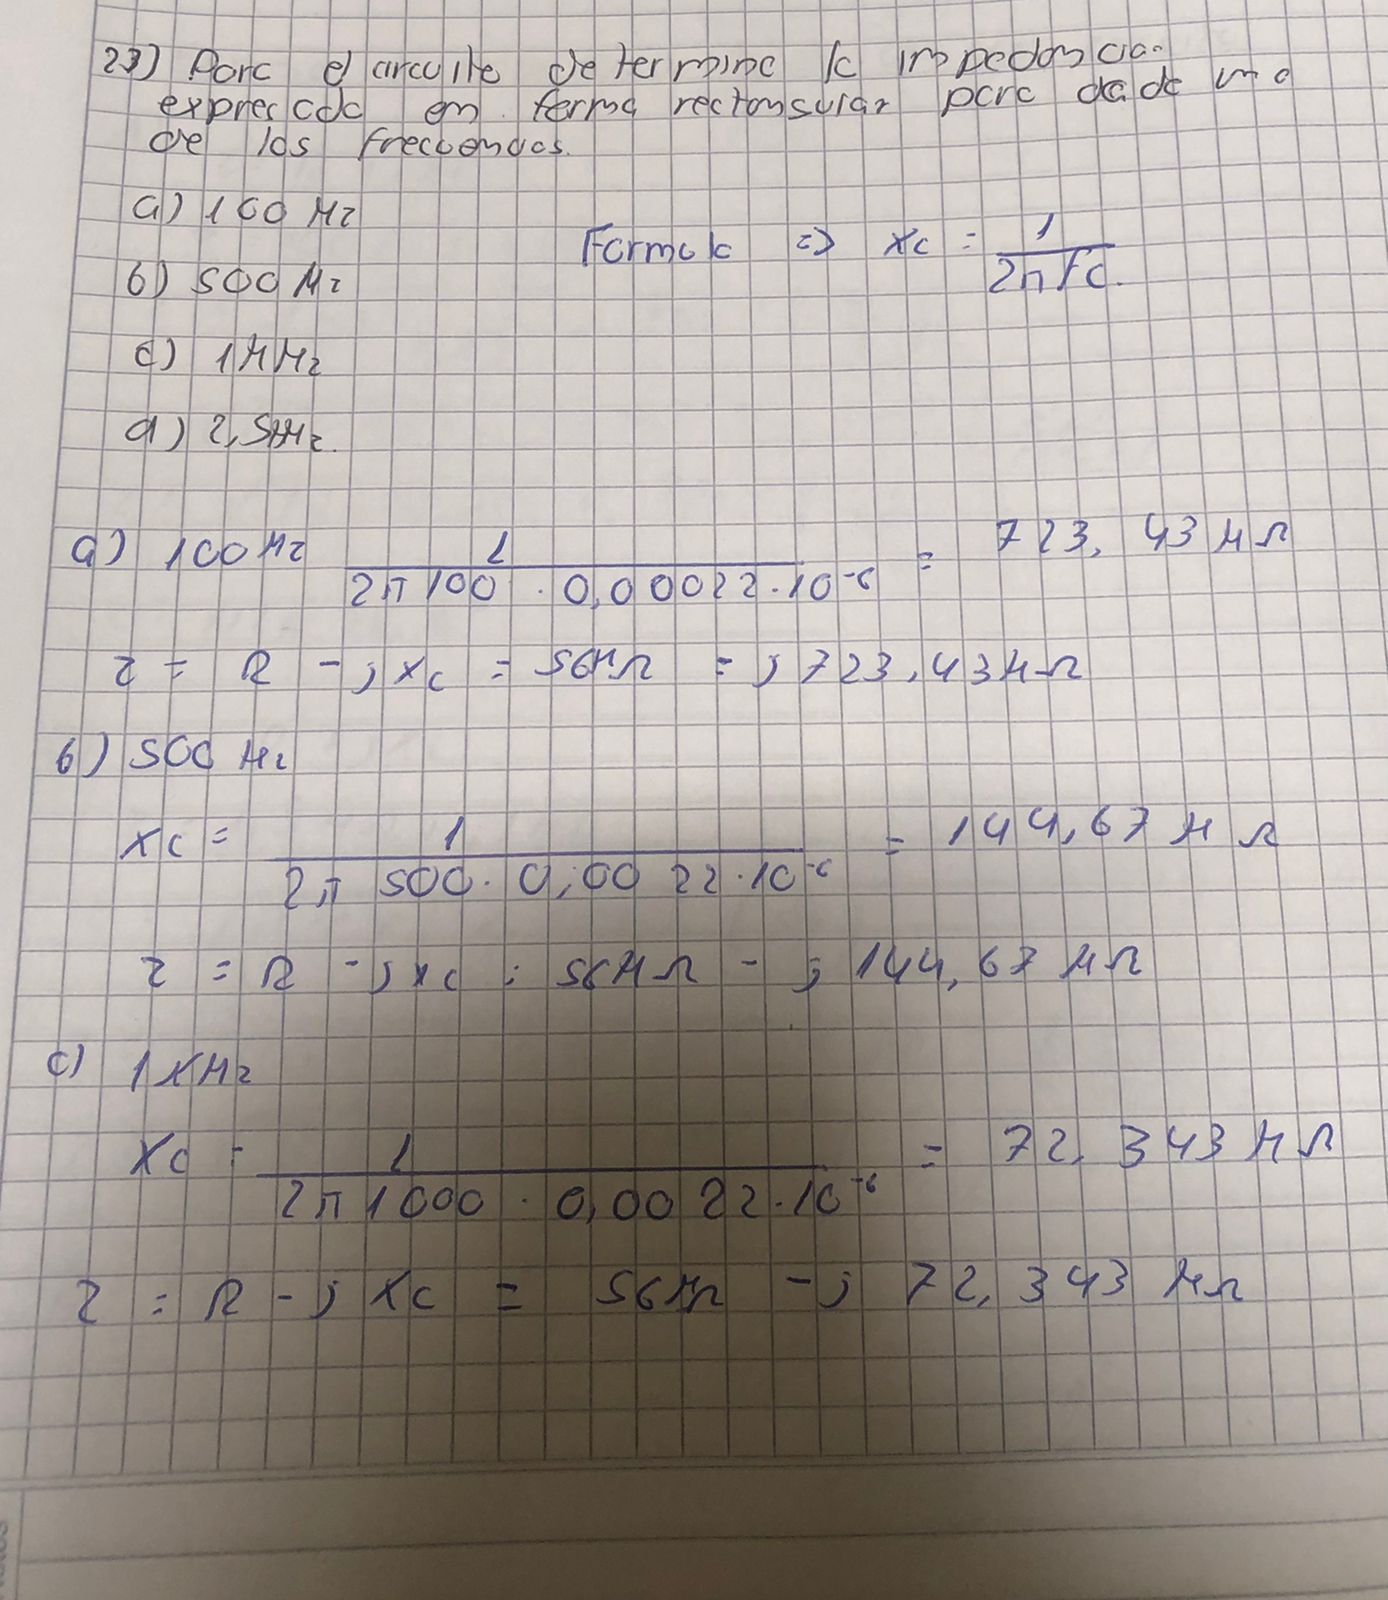 23) Para el circuito determine la impedancia
expresada en forma rectangular para cada una
de las frecuencias.
a) 100 Hz
Formula => Xc = 1 / 2π fC.
b) 500 Hz
c) 1 KHz
d) 2,5 KHz.
a) 100 Hz 1 / 2π 100 · 0,00022 · 10^-6 = 723,43 KΩ
Z = R - j Xc = 56KΩ = j 723,43 KΩ
b) 500 Hz
Xc = 1 / 2π 500 · 0,0022 · 10^-6 = 144,67 KΩ
Z = R - j Xc = 56KΩ - j 144,67 KΩ
c) 1 KHz
Xc = 1 / 2π 1000 · 0,0022 · 10^-6 = 72,343 KΩ
Z = R - j Xc = 56KΩ - j 72,343 KΩ